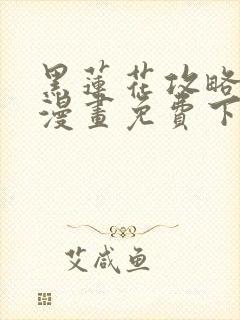 黑蓮花攻略
漫畫免費下
艾咸鱼